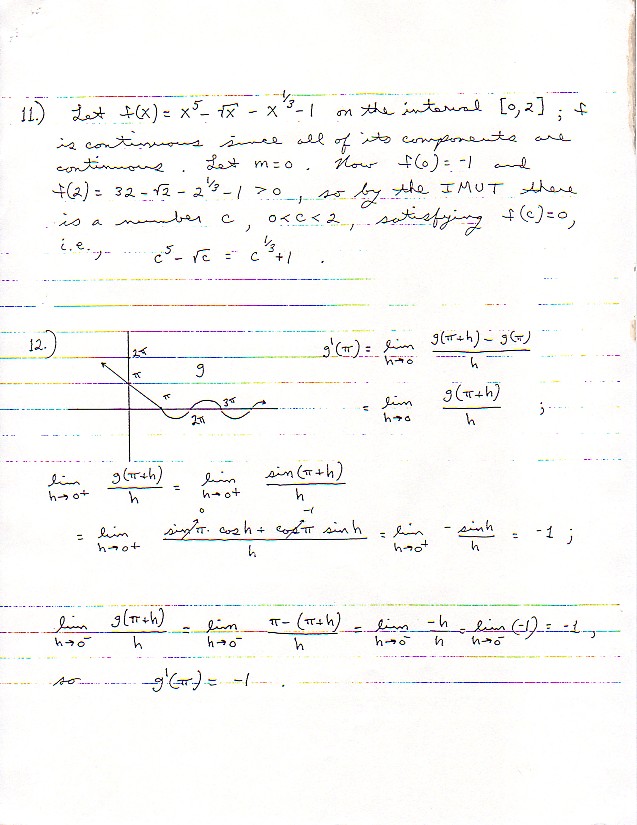 11.) Let f(x) = x⁵ - √x - x^{1/3} - 1 on the interval [0,2] ; f
is continuous since all of its components are
continuous . Let m=0 . Now f(0) = -1 and
f(2) = 32 - √2 - 2^{1/3} - 1 > 0 , so by the IMVT there
is a number c , 0<c<2 , satisfying f(c)=0,
i.e., c⁵ - √c = c^{1/3} + 1 .
12.) g'(π) = lim_{h→0} (g(π+h) - g(π))/h
2π
π g
π 2π 3π
= lim_{h→0} g(π+h)/h ;
lim_{h→0⁺} g(π+h)/h = lim_{h→0⁺} sin(π+h)/h
= lim_{h→0⁺} (sin π · cosh + cos π sinh)/h = lim_{h→0⁺} -sinh/h = -1 ;
0 -1
lim_{h→0⁻} g(π+h)/h = lim_{h→0⁻} (π-(π+h))/h = lim_{h→0⁻} -h/h = lim_{h→0⁻} (-1) = -1 ,
so g'(π) = -1 .